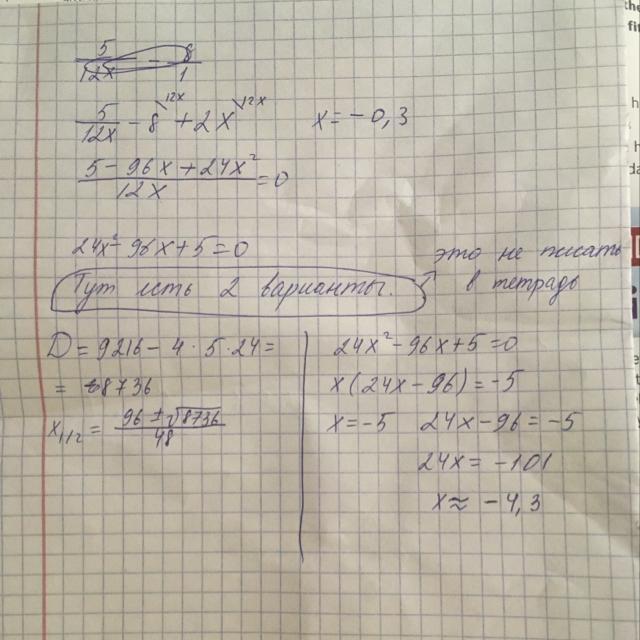 5/12x - 8/1
5/12x - 8^\12x + 2x^\12x
x = -0,3
(5 - 96x + 24x²)/12x = 0
24x² - 96x + 5 = 0
Тут есть 2 варианты.
это не писать
в тетрадь
D = 9216 - 4 · 5 · 24 =
= 8736
x₁,₂ = (96 ± √8736)/48
24x² - 96x + 5 = 0
x(24x - 96) = -5
x = -5 24x - 96 = -5
24x = -101
x ≈ -4,3